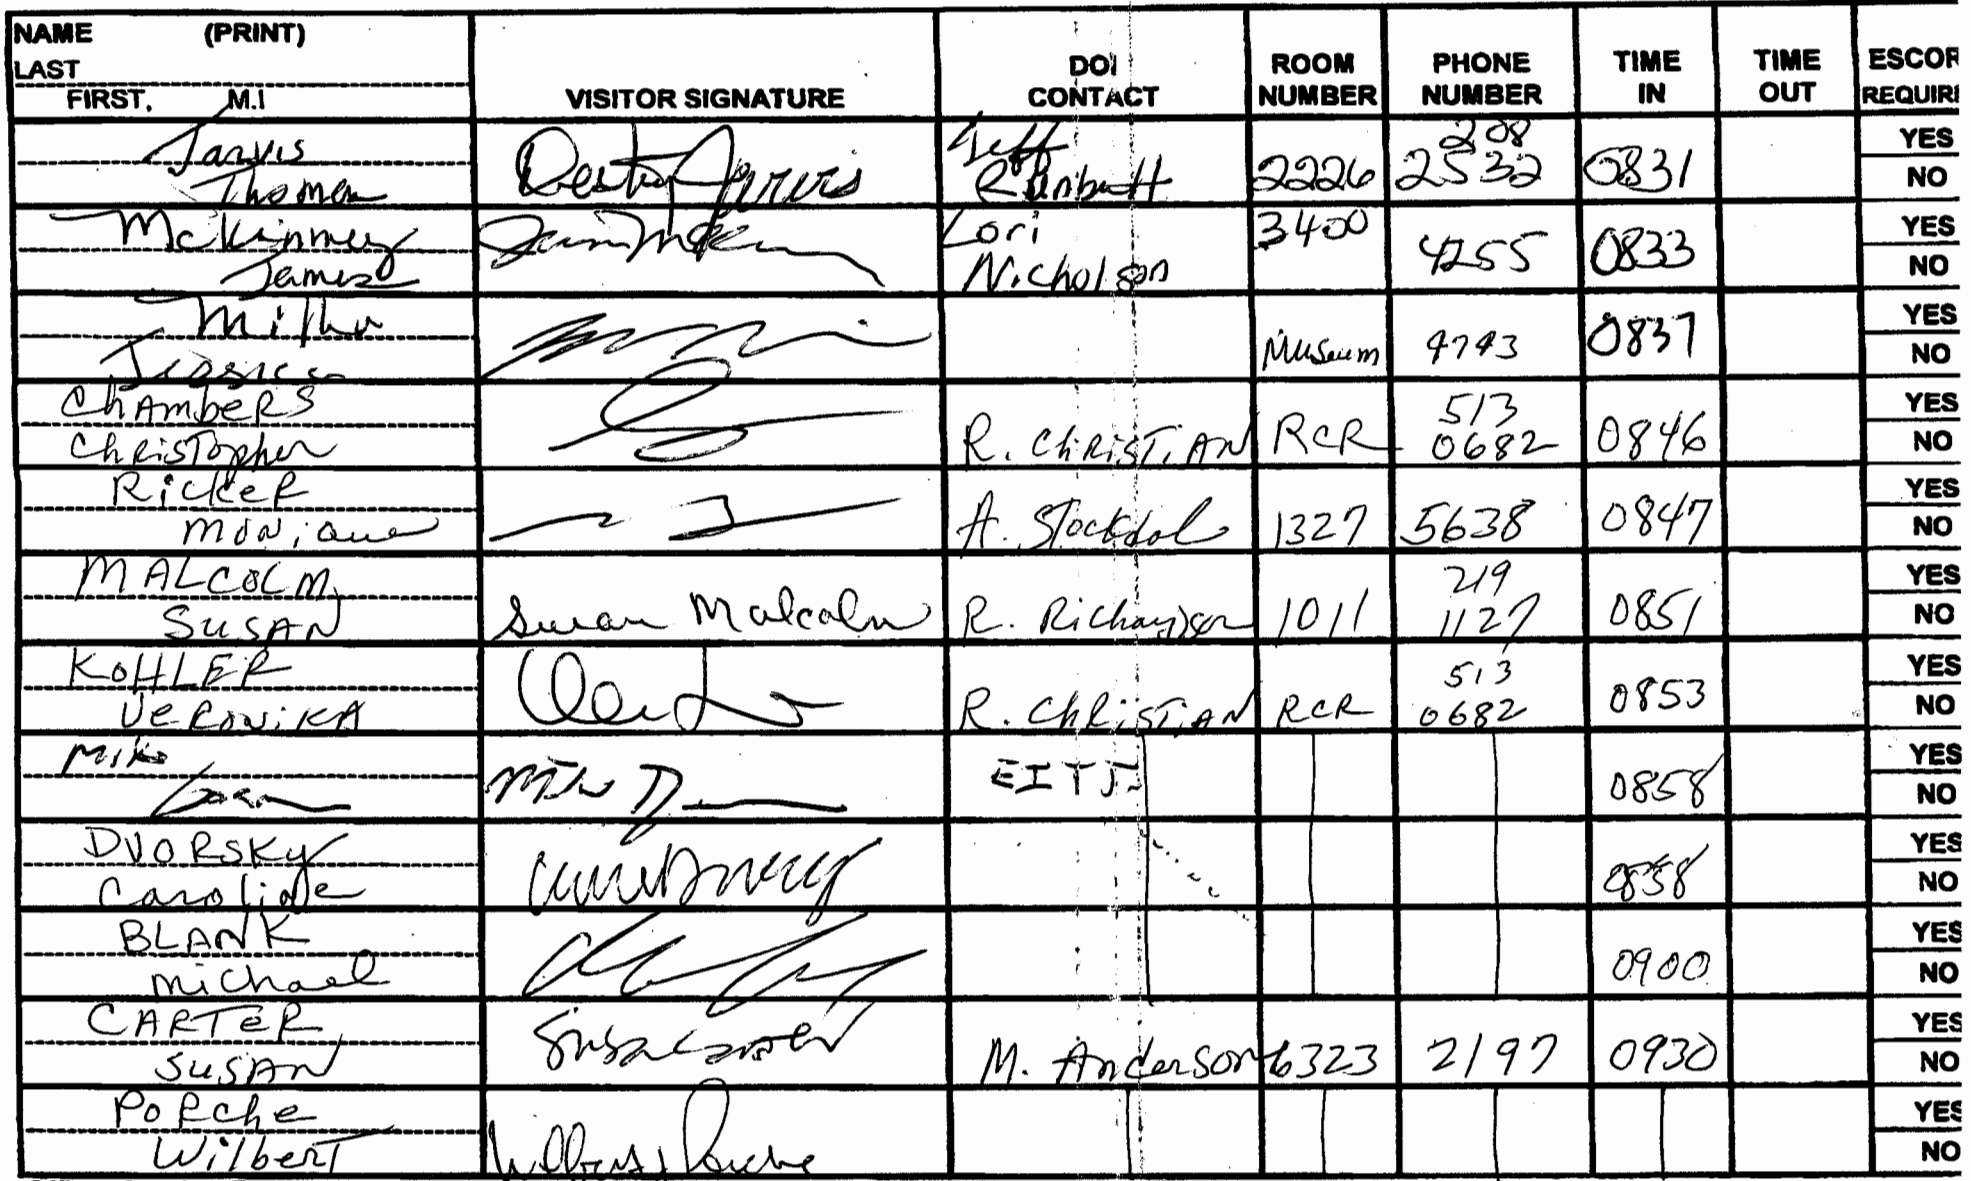 NAME (PRINT)
LAST
FIRST, M.I
VISITOR SIGNATURE
DOI
CONTACT
ROOM
NUMBER
PHONE
NUMBER
TIME
IN
TIME
OUT
ESCOR
REQUIRE
Jarvis
Thomas
Jarvis
Jeff
2226
208
2532
0831
YES
NO
McKinney
James
Lori
Nicholson
3400
4255
0833
YES
NO
Jessica
Museum
4743
0837
YES
NO
Chambers
Christopher
R. Christian
RCR
513
0682
0846
YES
NO
Ricker
Monique
A. Stockdal
1327
5638
0847
YES
NO
MALCOLM,
SUSAN
Susan Malcolm
R. Richardson
1011
219
1127
0851
YES
NO
KOHLER
VERONIKA
R. Christian
RCR
513
0682
0853
YES
NO
Mike
Mike
EITI
0858
YES
NO
DVORSKY
Caroline
0858
YES
NO
BLANK
michael
0900
YES
NO
CARTER
SUSAN
Susan Carter
M. Anderson
6323
2197
0930
YES
NO
Porche
Wilbert
Wilbert Porche
YES
NO